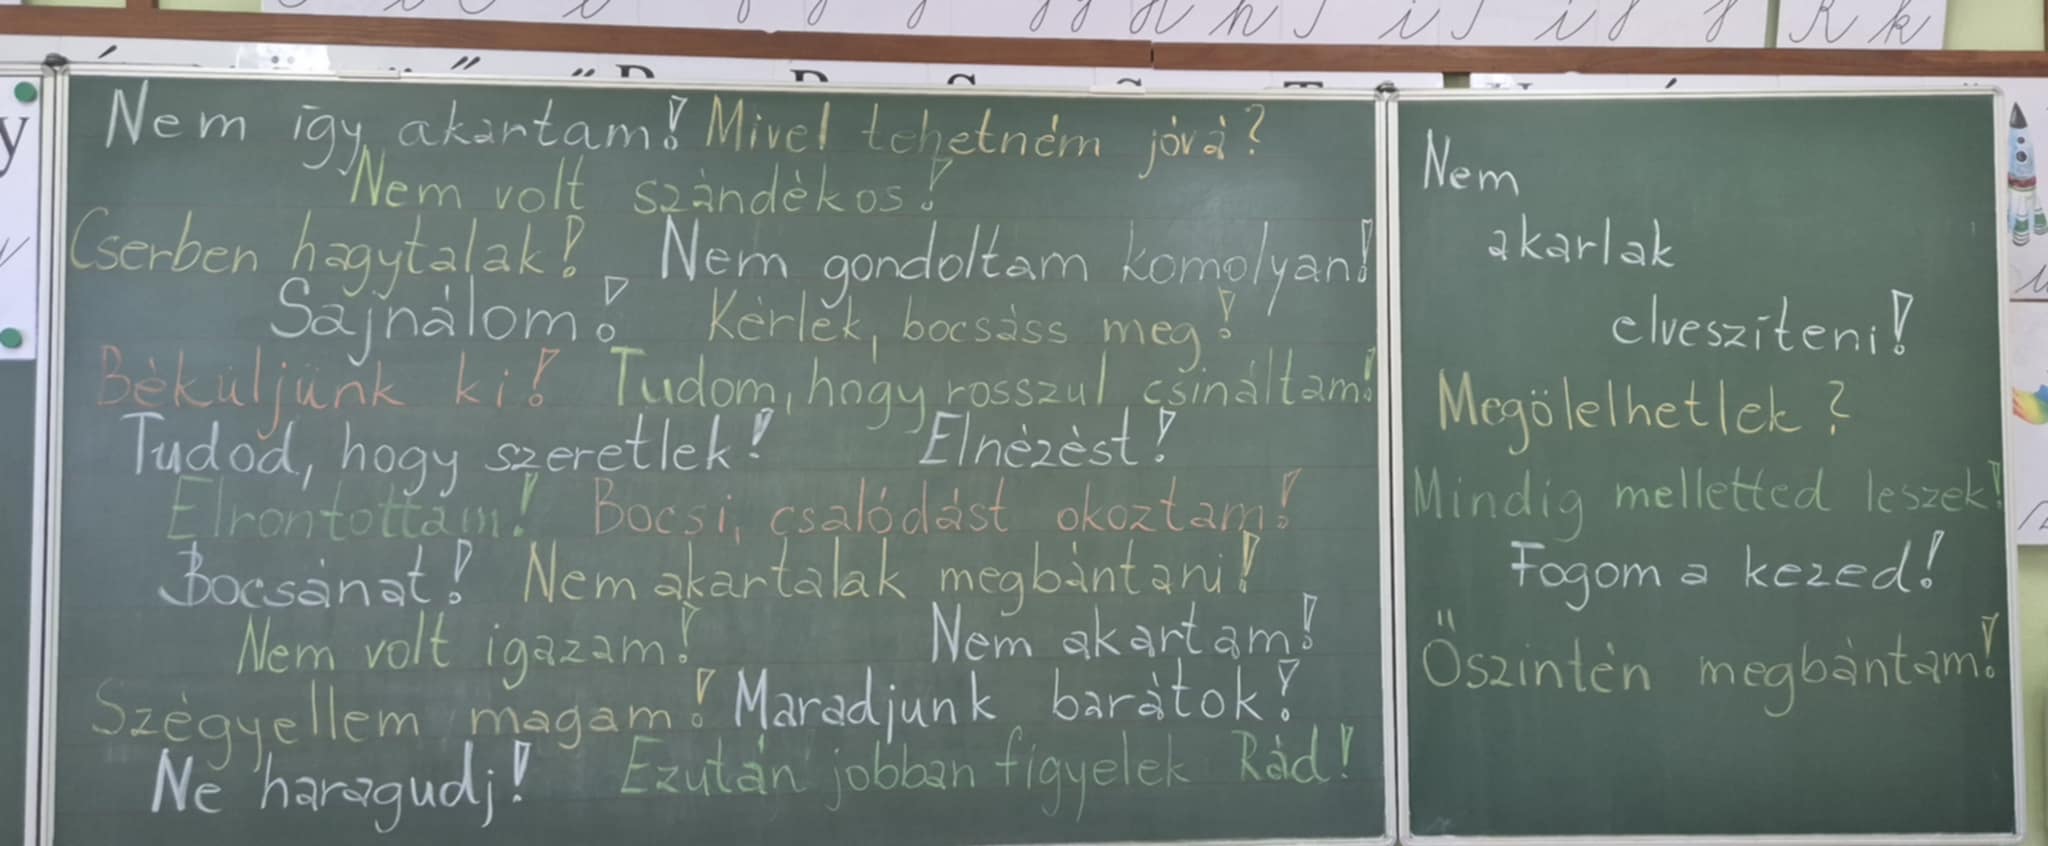 Nem így akartam! Mivel tehetném jóvá?
Nem volt szándékos!
Cserben hagytalak! Nem gondoltam komolyan!
Sajnálom! Kérlek, bocsáss meg!
Béküljünk ki! Tudom, hogy rosszul csináltam!
Tudod, hogy szeretlek! Elnézést!
Elrontottam! Bocsi, csalódást okoztam!
Bocsánat! Nem akartalak megbántani!
Nem volt igazam! Nem akartam!
Szégyellem magam! Maradjunk barátok!
Ne haragudj! Ezután jobban figyelek Rád!
Nem
akarlak
elveszíteni!
Megölelhetlek?
Mindig melletted leszek!
Fogom a kezed!
Őszintén megbántam!